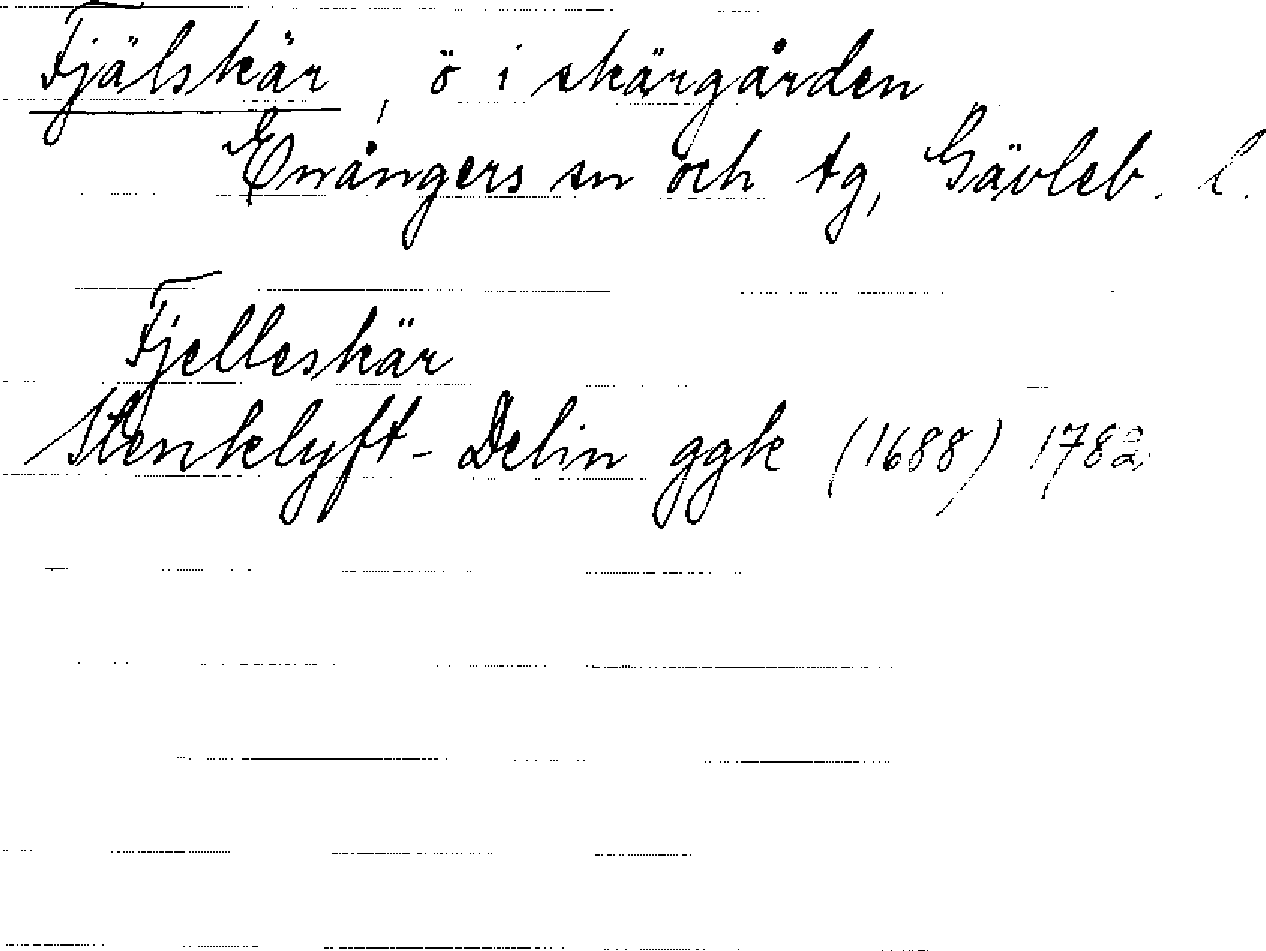 Fjälskär, ö i skärgården
Enångers sn och tg, Gävleb. l.
Fjelleskär
Stenklyft-Delin ggk (1688) 1782